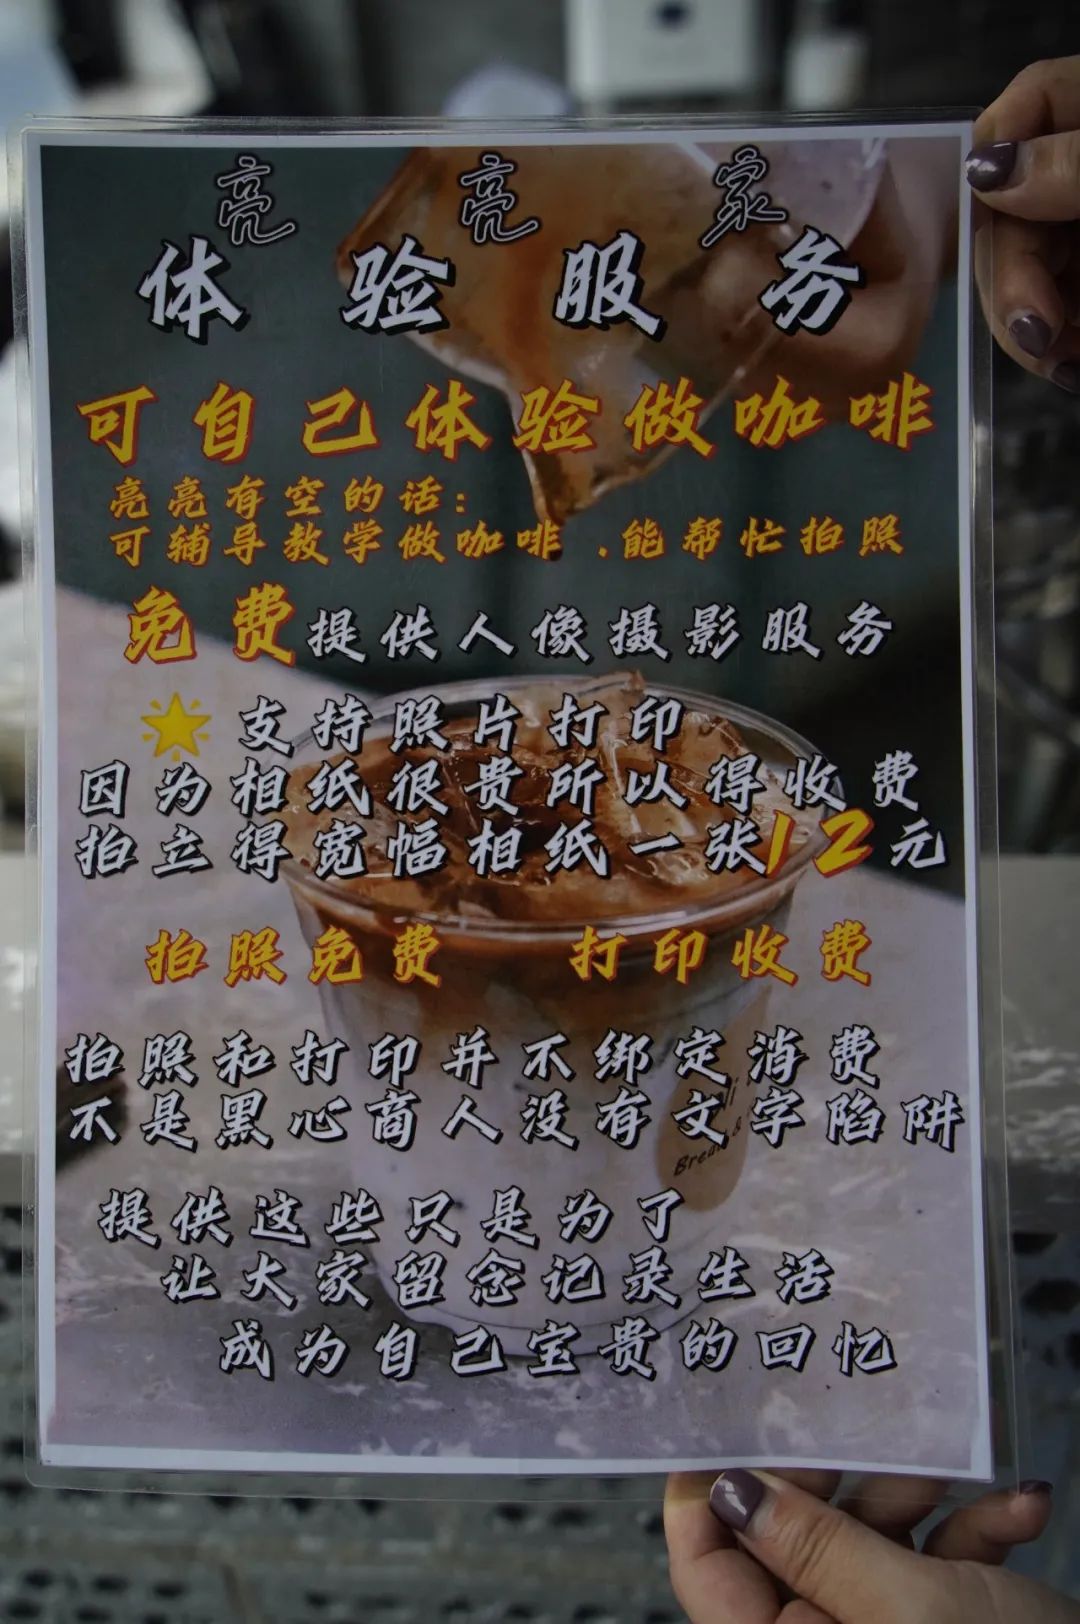 亮亮家
体验服务
可自己体验做咖啡
亮亮有空的话:
可辅导教学做咖啡.能帮忙拍照
免费提供人像摄影服务
支持照片打印
因为相纸很贵所以得收费
拍立得宽幅相纸一张12元
拍照免费 打印收费
拍照和打印并不绑定消费
不是黑心商人没有文字陷阱
提供这些只是为了
让大家留念记录生活
成为自己宝贵的回忆